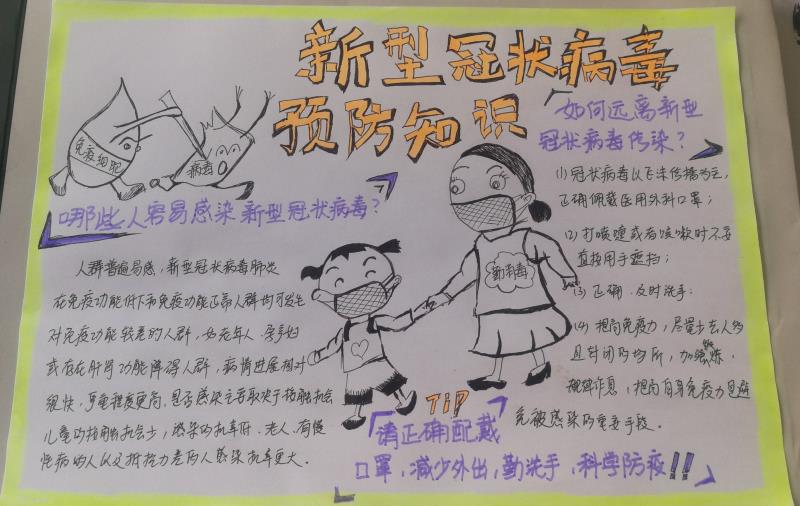 新型冠状病毒
预防知识
免疫细胞
病毒
哪些人容易感染新型冠状病毒？
人群普遍易感，新型冠状病毒肺炎
在免疫功能低下和免疫功能正常人群均可发生
对免疫功能较差的人群，如老年人、孕产妇
或存在肝肾功能障碍人群，病情进展相对
很快，严重程度更高，是否感染主要取决于接触机会
儿童的接触机会少，感染的机率低，老人、有慢
性病的人以及抵抗力差的人感染机率更大。
如何远离新型
冠状病毒传染？
(1) 冠状病毒以飞沫传播为主，
正确佩戴医用外科口罩；
(2) 打喷嚏或者咳嗽时不要
直接用手遮挡；
(3) 正确、及时洗手；
(4) 提高免疫力，尽量少去人多
且封闭的场所，加强锻炼，
规律作息，提高自身免疫力是避
免被感染的重要手段。
勤消毒
TiP
请正确配戴
口罩，减少外出，勤洗手，科学防疫!!